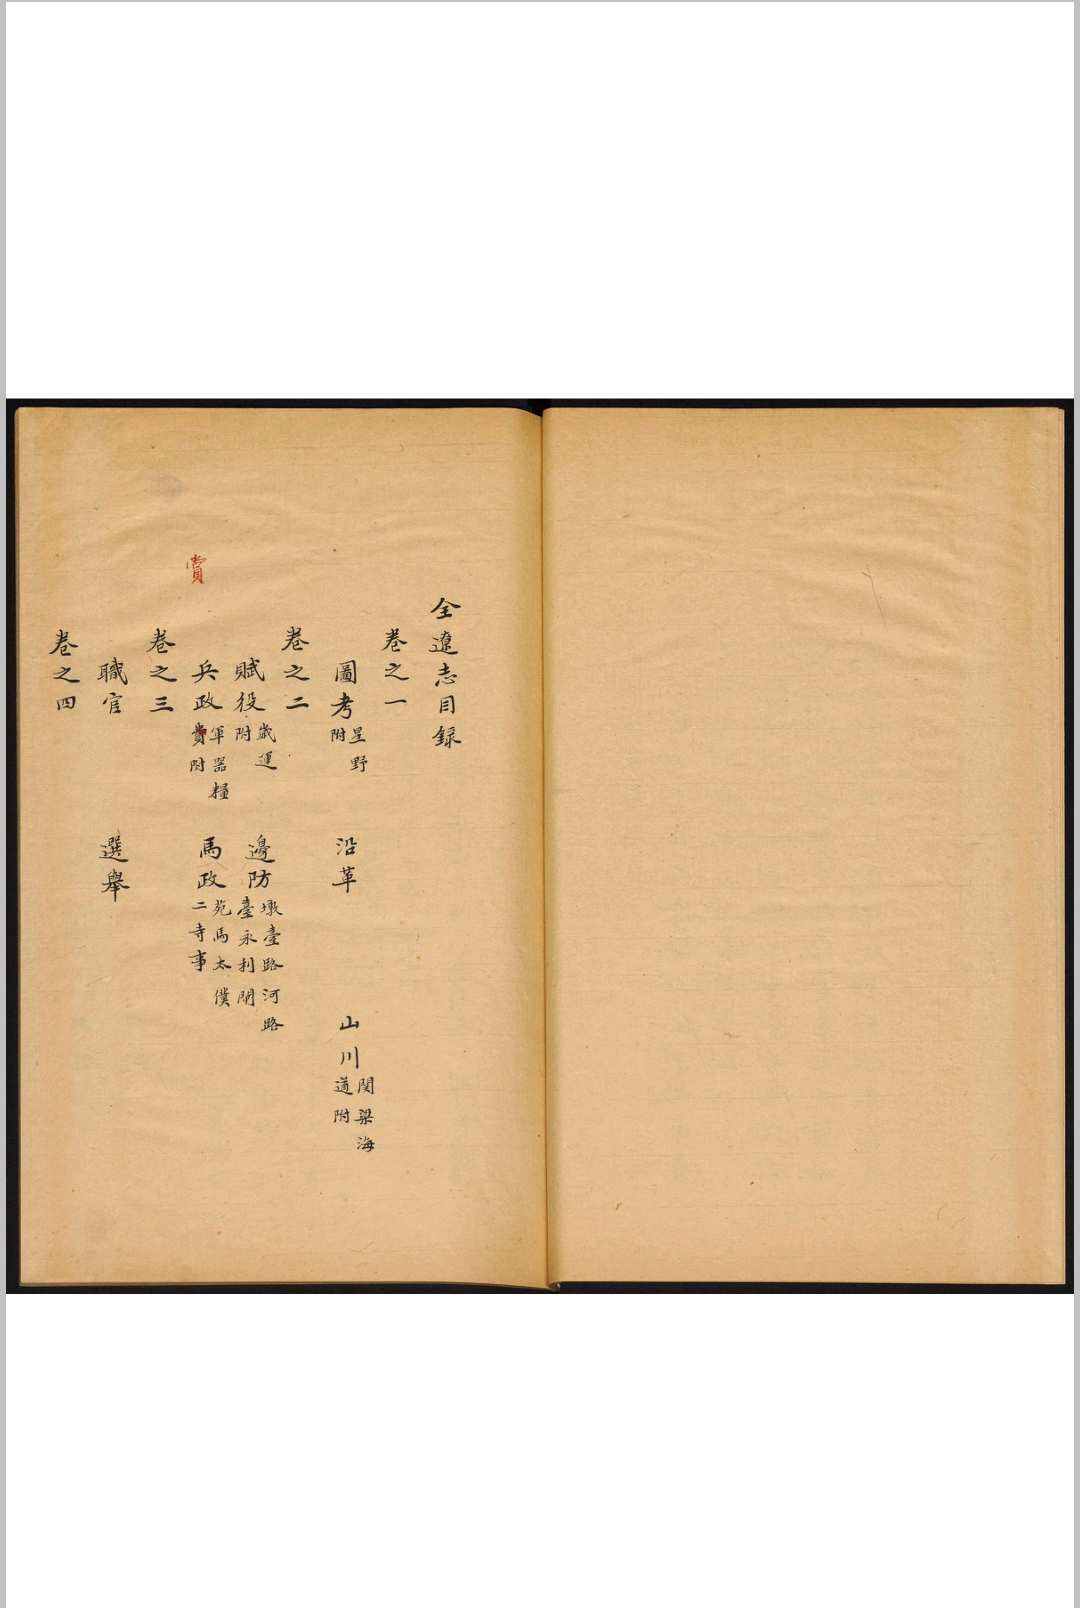 全遼志目録
卷之一
圖考 星野附 沿革 山川 関梁海道附
卷之二
賦役 歲運附 邊防 墩臺路河路臺永利閘
兵政 軍器糧賞附 馬政 苑馬太僕二寺事
賞
卷之三
職官 選舉
卷之四